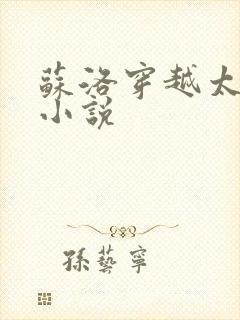 蘇洛穿越太
小說
孫藝寧